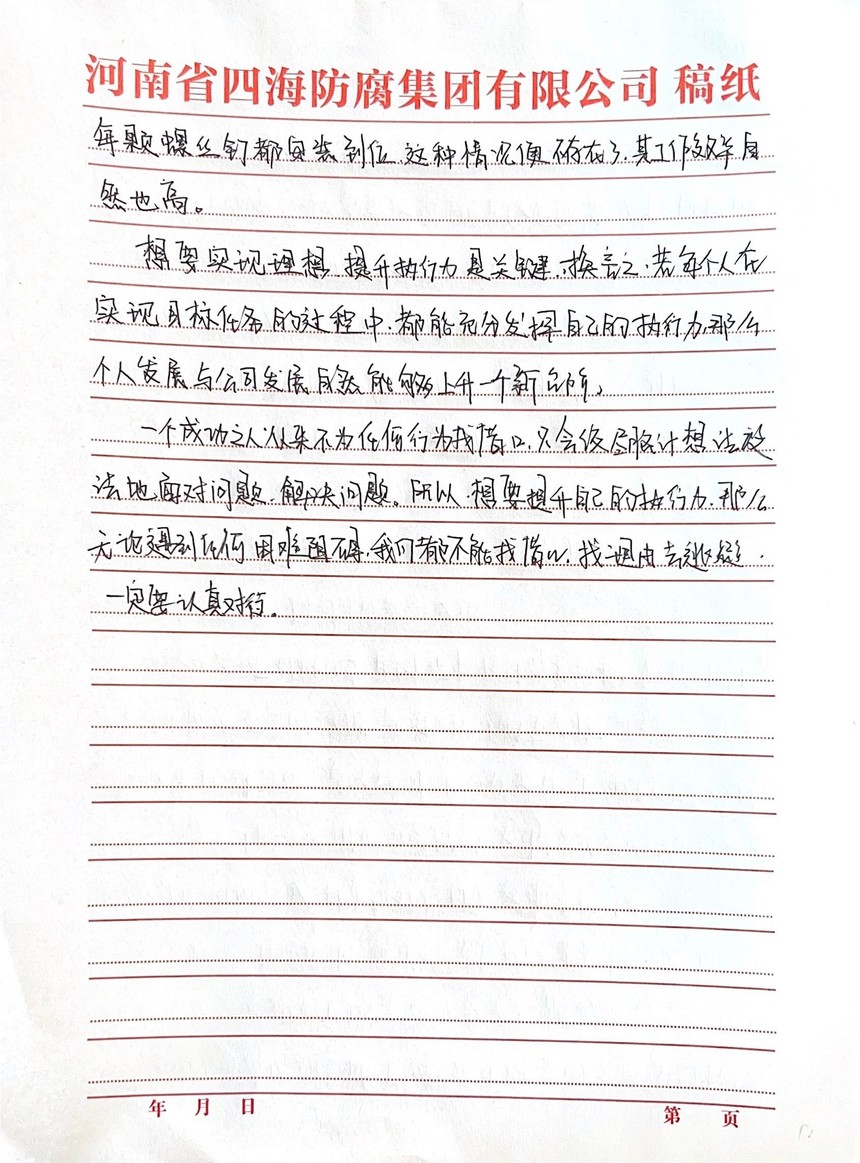 河南省四海防腐集团有限公司 稿纸
每颗螺丝钉都安装到位,这种情况便不存在了,其工作效率自
然也高。
想要实现理想,提升执行力是关键,换言之,若每个人在
实现目标任务的过程中,都能充分发挥自己的执行力,那么
个人发展与公司发展自然能够上升一个新台阶。
一个成功之人从来不为任何行为找借口,只会使尽脑汁想法设
法地面对问题,解决问题。所以,想要提升自己的执行力,那么
无论遇到任何困难阻碍,我们都不能找借口,找理由去逃避,
一定要认真对待。
年 月 日
第 页